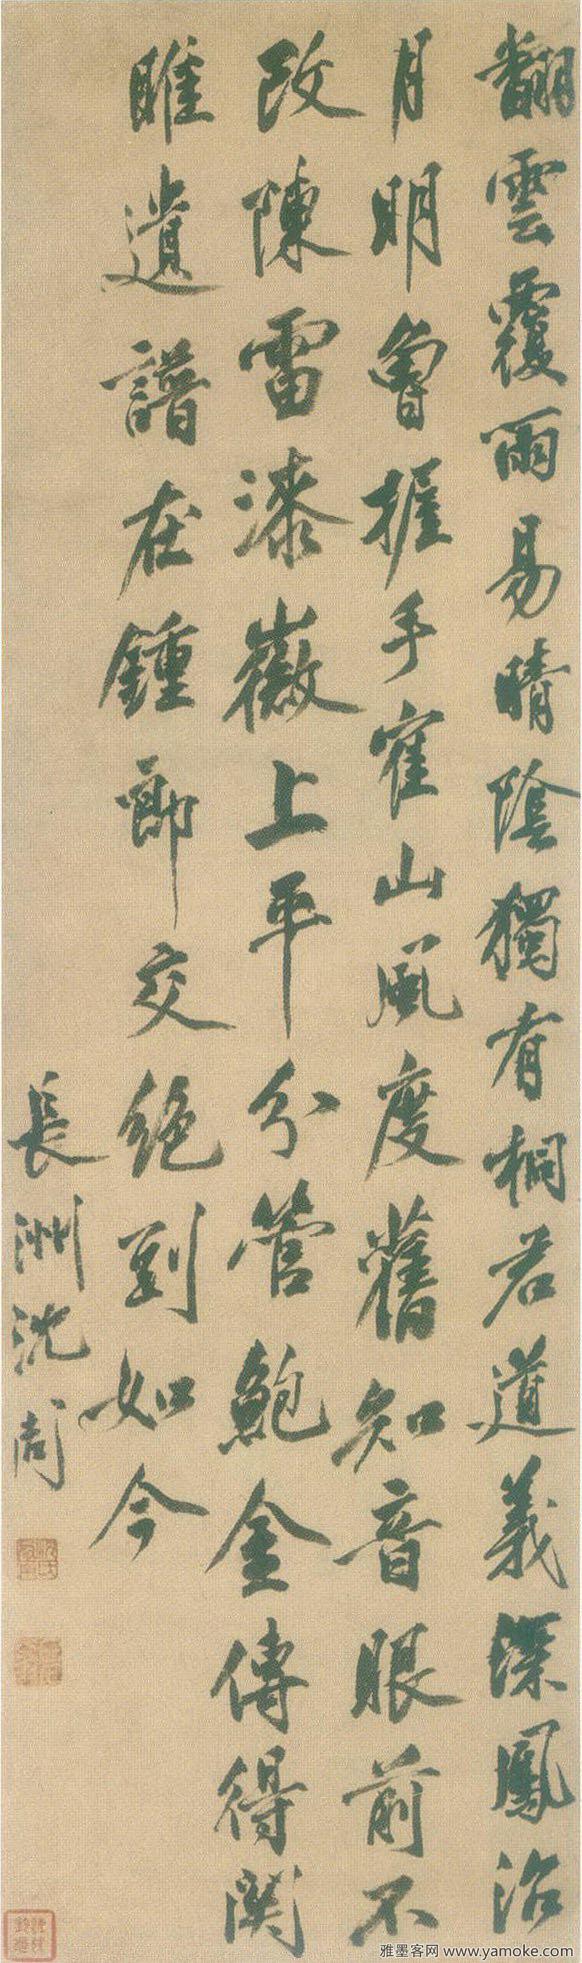 翻雲覆雨易晴陰獨有桐君道義深鳳沼
月明曾握手寉山風度舊知音眼前不
改陳雷漆徽上平分管鮑金傳得関
雎遺譜在鍾郎交絶到如今
長洲沈周
雅墨客网 www.yamoke.com